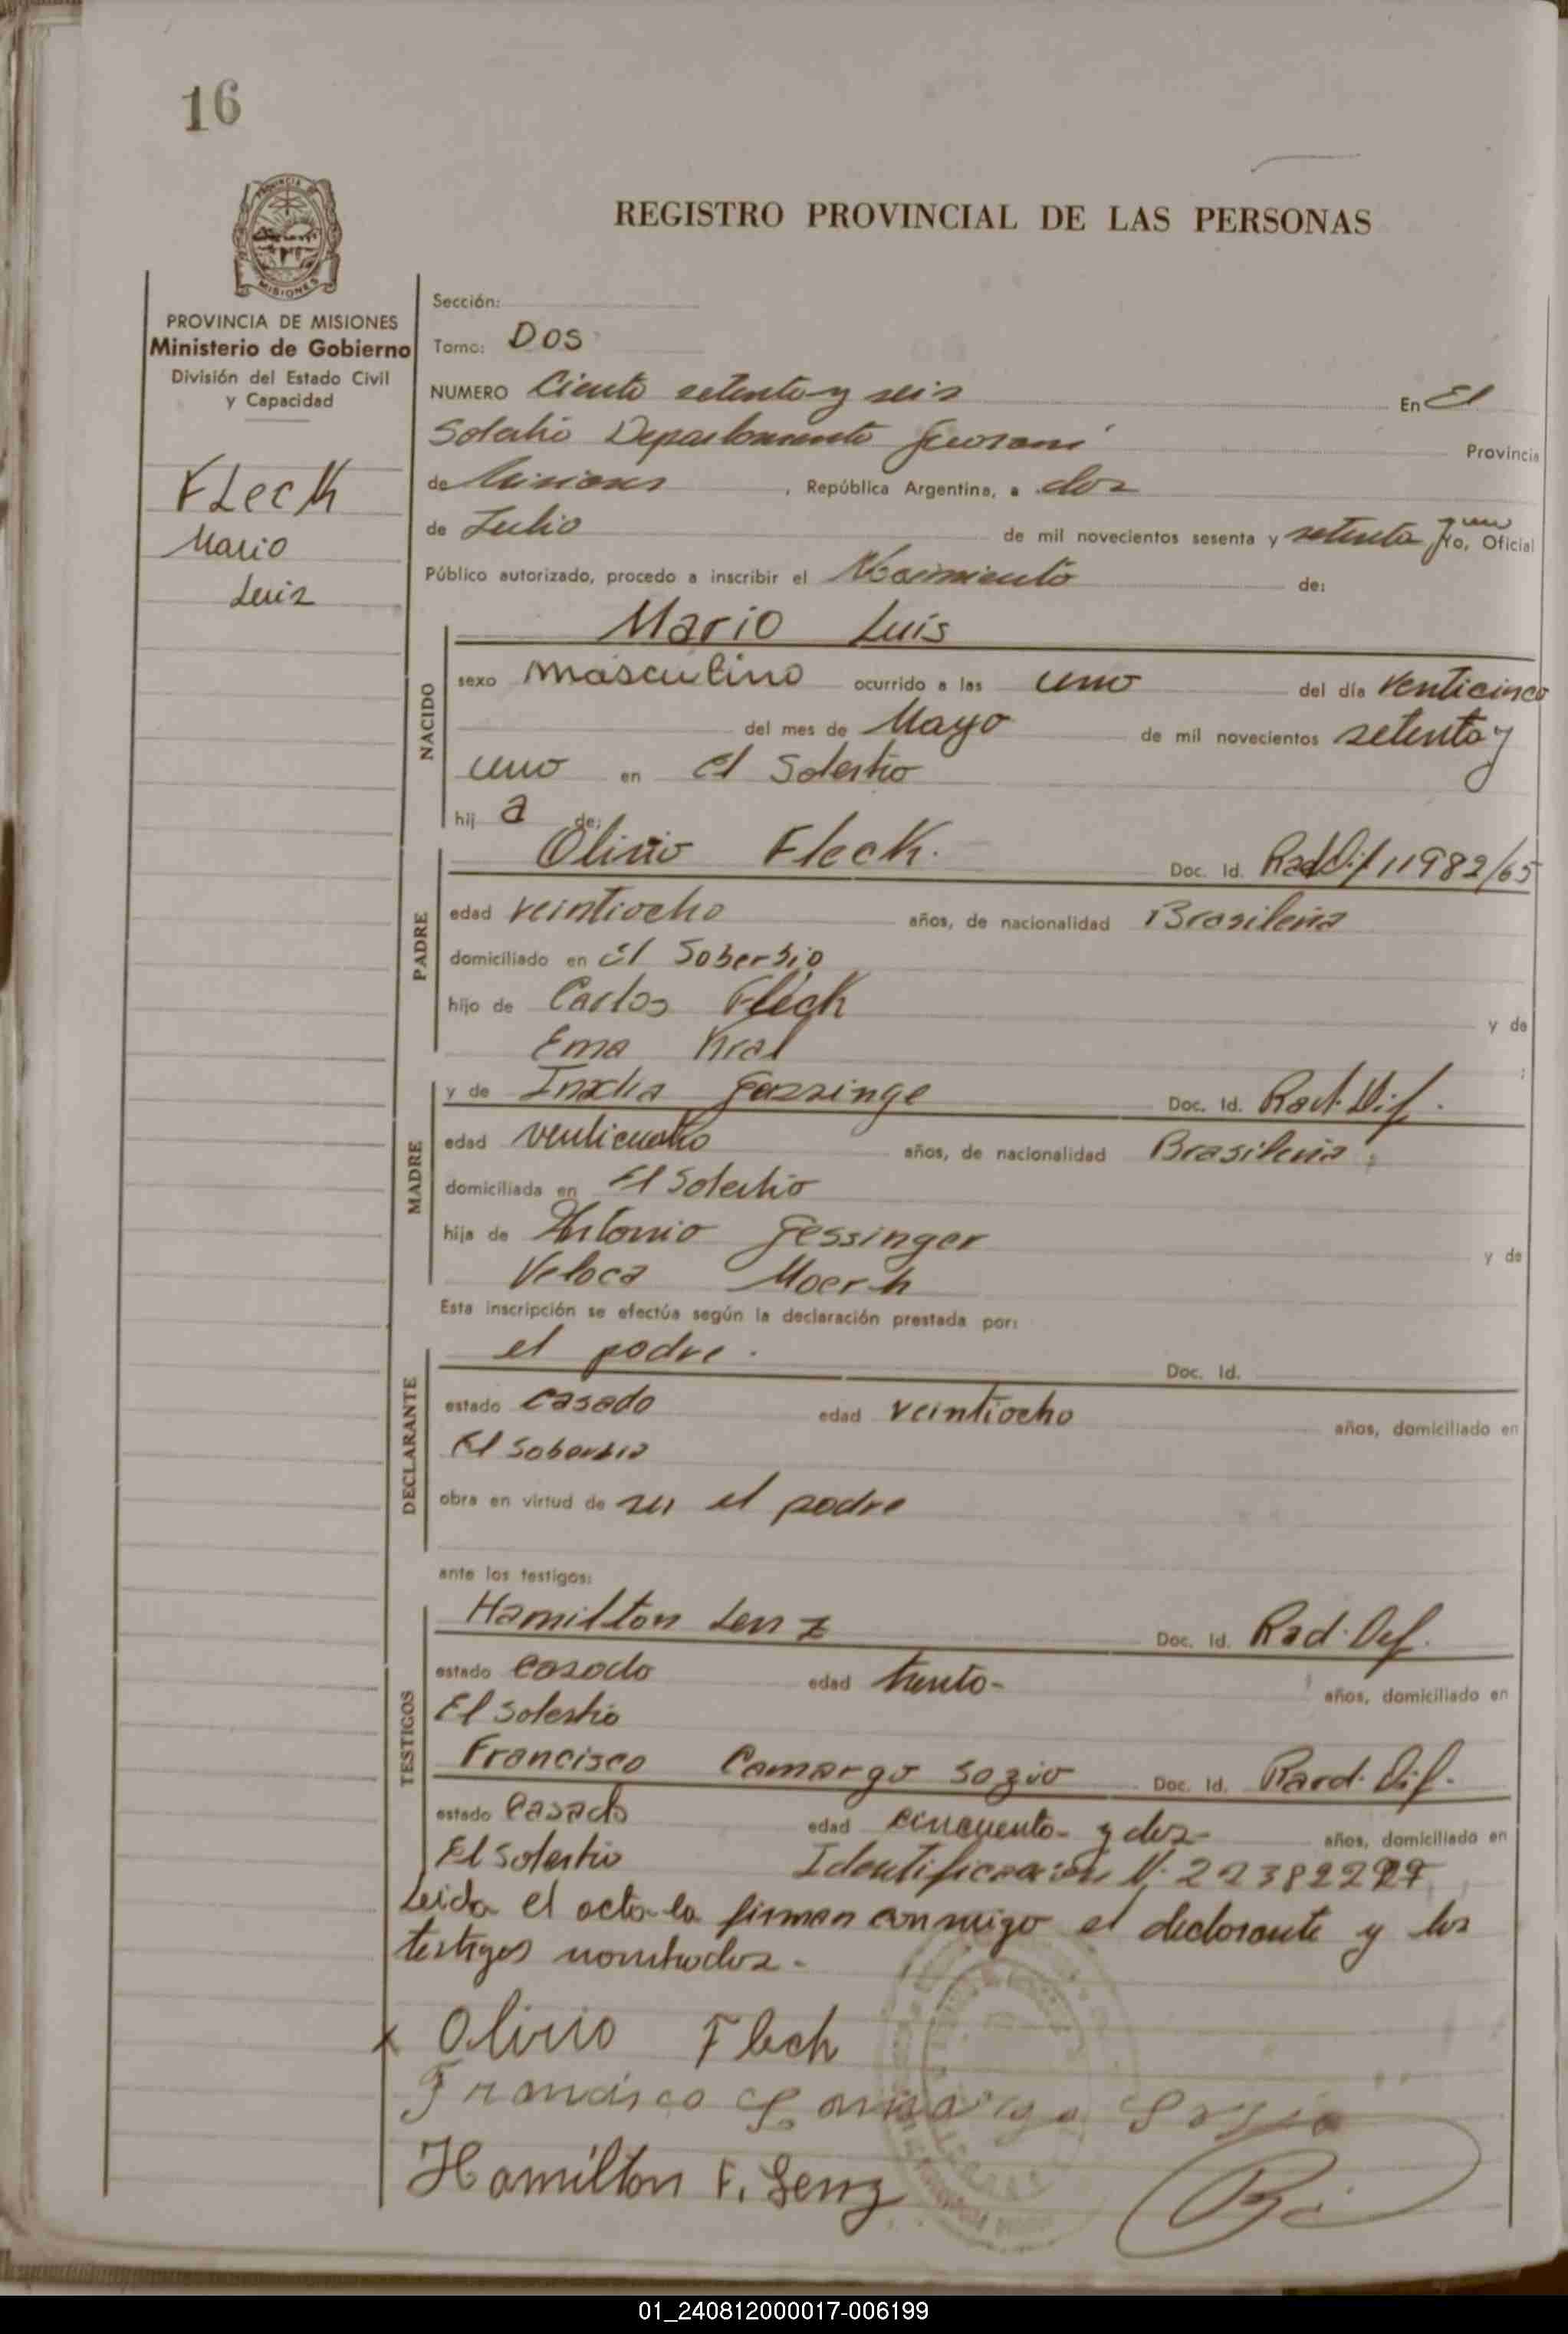 16
PROVINCIA DE
MISIONES
REGISTRO PROVINCIAL DE LAS PERSONAS
PROVINCIA DE MISIONES
Ministerio de Gobierno
División del Estado Civil
y Capacidad
Fleck
Mario
Luis
Sección:
Tomo: Dos
NUMERO Ciento setenta y seis En El
Soberbio Departamento Guaraní Provincia
de Misiones, República Argentina, a dos
de Julio de mil novecientos sesenta y setenta y uno Yo, Oficial
Público autorizado, procedo a inscribir el Nacimiento de:
Mario Luis
NACIDO
sexo masculino ocurrido a las uno del día venticinco
del mes de Mayo de mil novecientos setenta y
uno en El Soberbio
hij a de:
PADRE
Olirio Fleck. Doc. Id. Rad Dif 11982/65
edad veintiocho años, de nacionalidad Brasileña
domiciliado en El Soberbio
hijo de Carlos Fleck y de
Ema Kral
MADRE
y de Gassinge Doc. Id. Rad. Dif.
edad venticuatro años, de nacionalidad Brasileña
domiciliada en El Soberbio
hija de Antonio Gessinger y de
Veloca
Esta inscripción se efectúa según la declaración prestada por:
DECLARANTE
el padre. Doc. Id.
estado casado edad veintiocho años, domiciliado en
El Soberbio
obra en virtud de ser el padre
ante los testigos:
TESTIGOS
Hamilton Lenz Doc. Id. Rad. Dif.
estado casado edad treinta- años, domiciliado en
El Soberbio
Francisco Camargo Sozio Doc. Id. Rad. Dif.
estado Casado edad cincuenta y dos- años, domiciliado en
El Soberbio Identificación N. 22382297
Leida el acta la firman conmigo el declarante y los
testigos nombrados.-
x Olirio Flech
Francisco Camargo Sozio
Hamilton F. Lenz
01_240812000017-006199